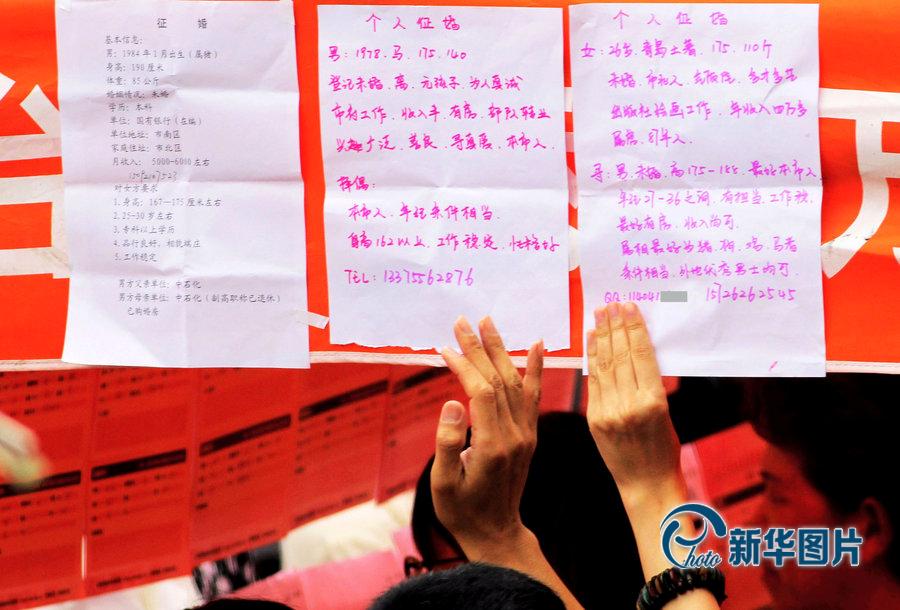 征 婚
基本信息：
男：1984年1月出生（属猪）
身高：190厘米
体重：85公斤
婚姻情况：未婚
学历：本科
单位：国有银行（在编）
单位地址：市南区
家庭住址：市北区
月收入：5000-6000左右
对女方要求
1.身高：167—175厘米左右
2.25-30岁左右
3.专科以上学历
4.品行良好，相貌端庄
5.工作稳定
男方父亲单位：中石化
男方母亲单位：中石化（副高职称已退休）
已购婚房
个人征婚
男：1978.马.175.140
登记未婚.离.无孩子.为人真诚
市府工作.收入丰.有房.部队转业
兴趣广泛.善良.寻真爱.本市人.
择偶：
本市人.年纪条件相当.
身高162以上.工作稳定.性格好
TEL：13375562876
个人征婚
女：26岁.青岛土著.175.110斤
未婚.市北人.多才多艺
出版社绘画工作.年收入四万多
属虎.
寻：男.未婚.高175-188.最好本市人
年纪27-36之间.有担当.工作稳.
最好有房.收入均可.
属相最好为猪.狗.鸡.马者
条件相当.外地优秀男士均可.
QQ：114041 15726262545
Photo 新华图片